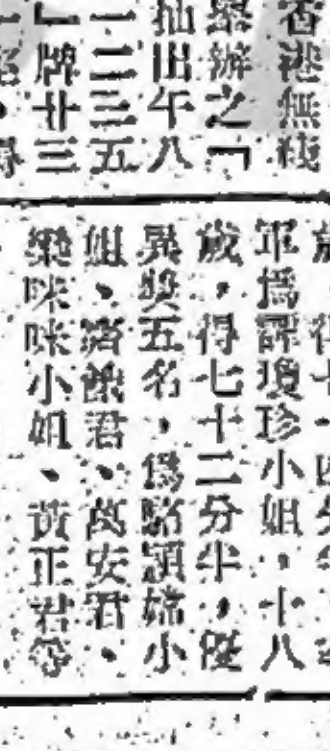 香港無綫
舉辦之「
抽出午八
一二三五
」牌廿三
軍爲譚瓊珍小姐，十八
歲，得七十二分半，優
異獎五名，爲駱頴嫦小
姐、君、萬安君、
樂咪咪小姐、黃正君等